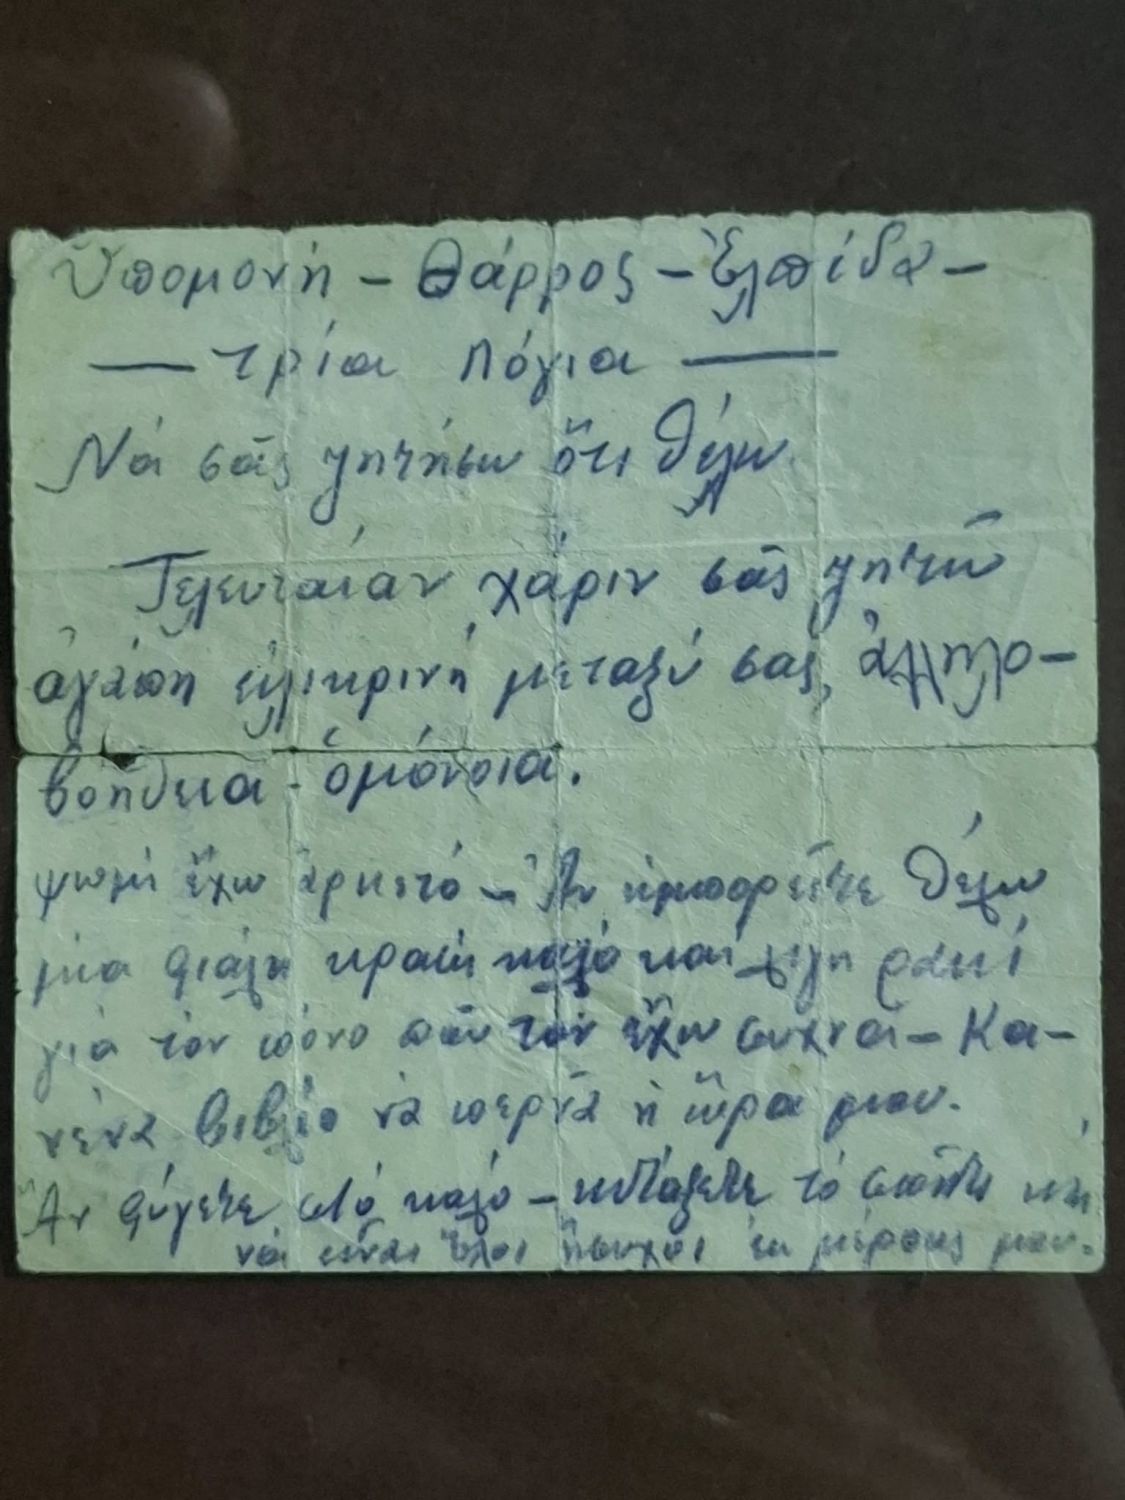 Ὑπομονή - Θάρρος - Ἐλπίδα -
— τρία λόγια —
Νά σᾶς ζητήσω ὅτι θέλω
Τελευταίαν χάριν σᾶς ζητῶ
ἀγάπη εἰλικρινή μεταξύ σας, ἀλληλο-
βοήθεια - ὁμόνοια.
ψωμί ἔχω ἀρκετό - Ἄν ἠμπορεῖτε θέλω
μία φιάλη κρασί καλό καί λίγη ρακί
γιά τόν πόνο πού τόν ἔχω συχνά - Κα-
νένα βιβλίο νά περνᾶ ἡ ὥρα μου.
Ἄν φύγετε στό καλό - κυτάξετε τό σπίτι καί
νά εἶναι ὅλοι ἥσυχοι ἐκ μέρους μου.